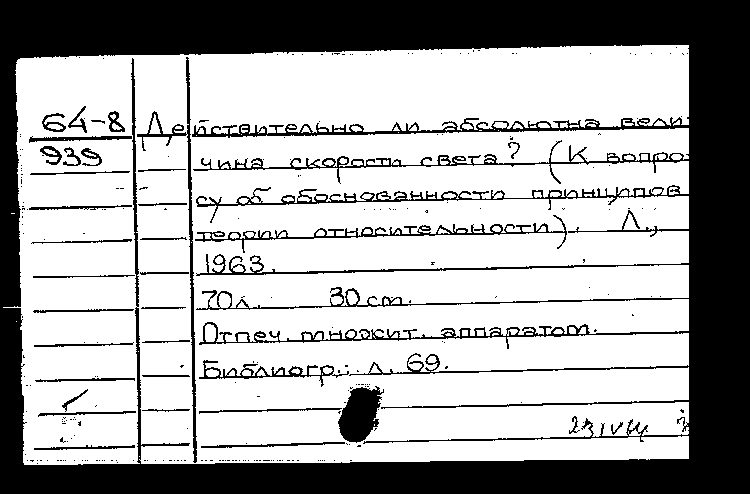 64-8 Действительно ли абсолютна вели-
939 чина скорости света? (К вопро-
су об обоснованности принципов
теории относительности). Л.,
1963.
70л. 30 см.
Отпеч. множит. аппаратом.
Библиогр.: л. 69.